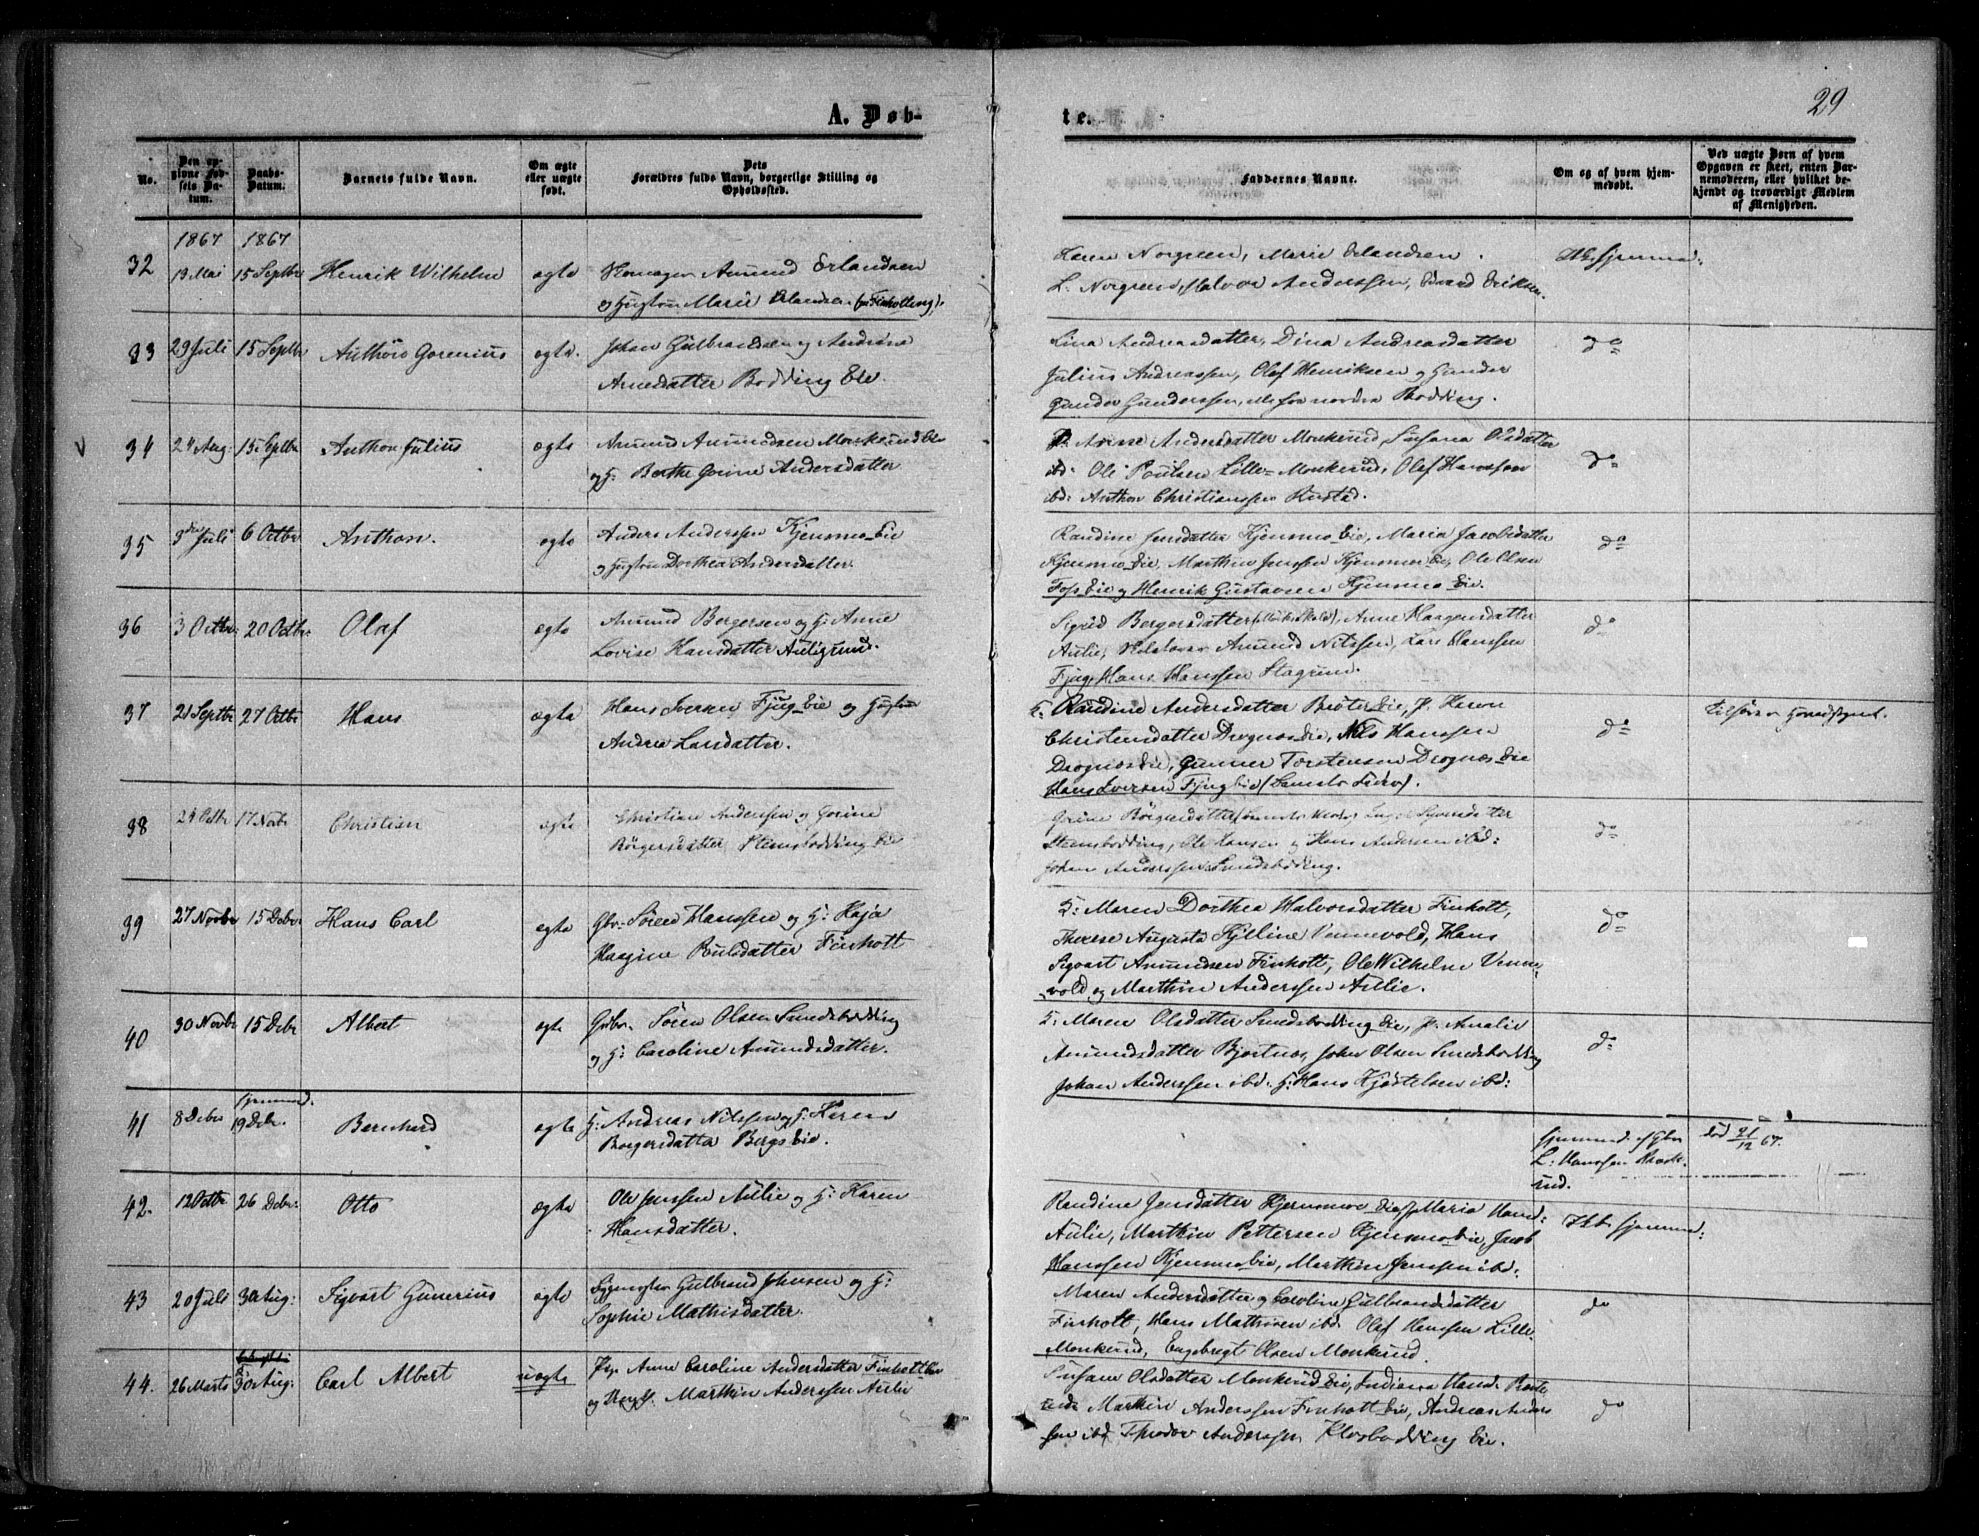 A. Døb-
te.
29
No.
Den op-
givne Fød-
sels Da-
tum.
Daabs-
Datum.
Barnets fulde Navn.
Om ægte
eller uægte
født.
Dets
Forældres fulde Navn, borgerlige Stilling og
Opholdssted.
Faddernes Navne.
Om og af hvem hjem-
medøbt.
Ved uægte Børn af hvem
Opgaven er skeet, enten Bar-
nemoderen, eller hvilket be-
kjendt og troværdigt Medlem
af Menigheden.
1867 1867
32 13 Mai 15 Septbr Henrik Wilhelm ægte
Amund Erlandsen
og Hustru Marie Erlandsen
Karen Norgreen, Marie Erlandsen
L. Norgreen, Halvor Andersen, Edvard Eriksen.
33 29 Juli 15 Septbr Anthon Gorenius ægte.
Johan Gulbrandsen og Andrine
Arnesdatter Bødding Eie.
Lina Andreasdatter, Dina Andreasdatter
Julius Andreassen, Olaf Henriksen og Gunder
Gunder Gunderssen, alle fra nordre Bødding.
do
34 24 Aug: 15 Septbr Anthon Julius ægte
Amund Amundsen Monkerud Eie
og H. Berthe Gorine Andersdatter
Anne Andersdatter Monkerud, Susana Olsdatter
ibd: Ole Poulsen Lille-Monkerud, Olaf Hanssen
ibd: Anthon Christianssen Rustad.
do
35 3die Juli 6 Octbr Anthon. ægte
Anders Anderssen Kjensmo Eie
og Hustru Dorthea Andersdatter.
Randine Jensdatter Kjensmo Eie, Maria Jacobsdatter
Kjensmo Eie, Marthin Jenssen Kjensmo Eie, Ole Olsen
Foss Eie og Henrik Gustavsen Kjensmo Eie.
do
36 3 Octbr: 20 Octbr: Olaf ægte
Amund Bergersen og H. Anne
Lovise Hansdatter Auligrund.
Sigrid Bergersdatter, Anne Haagensdatter
Aulie, Amund Nilssen, Lars Hanssen
Fjug, Hans Hanssen
do
37 21 Septbr 27 Octbr Hans ægte
Hans Iversen Fjug Eie og Hustru
Andrea Larsdatter.
Randine Andersdatter Brøter Eie, P. Karen
Christensdatter Drognæs Eie, Nils Hanssen
Drognæs Eie, Gunner Torstensen Drognæs Eie
Hans Iversen Fjug Eie (Barnets Fader).
do
38 24 Octbr 17 Novbr Christian ægte
Christian Anderssen og Gorine
Børgersdatter Stensbødding Eie
Gorine Børgersdatter
Stensbødding, Ole Hansen og Hans Andersen ibd:
Johan Anderssen Sundsbødding.
do
39 27 Novbr 15 Debr. Hans Carl ægte
Gbr. Søren Hanssen og H: Kaja
Haagine Poulsdatter Finholt
H: Maren Dorthea Halvorsdatter Finholt,
Therese Augusta Kjelline Vennevold, Hans
Sigvart Amundsen Finholt, Ole Wilhelm Venne-
vold og Marthin Anderssen Aulie.
do
40 30 Novbr 15 Debr Albert ægte
Gbr. Søren Olsen Sundsbødding
og H: Caroline Amundsdatter.
H: Maren Olsdatter Sundsbødding Eie, P. Amalie
Amundsdatter Bjertnæs, Johan Olsen Sundsbødding
Johan Anderssen ibd: Hans Kjøstelsen ibd:
do
41 8 Debr hjemmed. 19 Debr. Bernhard ægte
H: Andreas Nilssen og H: Karen
Borgersdatter Bergs Eie.
hjemmed. af Gbr
L: Hanssen
rud.
død 21/12 67.
42. 12 Octbr. 26 Debr: Otto ægte
Ole Jenssen Aulie og H: Karen
Hansdatter.
Randine Jensdatter Kjensmoe Eie, P. Maria Hansd:
Aulie, Marthin Pettersen Kjensmo Eie, Jacob
Hanssen Kjensmo Eie, Marthin Jenssen ibd:
Ikke hjemmed:
43 20 Juli 30 Aug: Sigvart Gunerius ægte
Gulbrand Johnsen og H:
Sophie Mathisdatter.
Maren Andersdatter og Caroline Gulbrandsdatter
Finholt, Hans Mathisen ibd. Olaf Hanssen Lille-
Monkerud, Engebregt Olsen Monkerud.
do
44. 26 Marts 30 Aug: Carl Albert uægte
Pige Anne Caroline Andersdatter Finholt Eie
og Ungk. Marthin Anderssen Aulie
Susane Olsdatter Monkerud Eie, Indiana Hansd.
Marthin Anderssen Finholt Eie, Andreas Anders-
sen ibd Theodor Anderssen Klosbødding Eie.
do